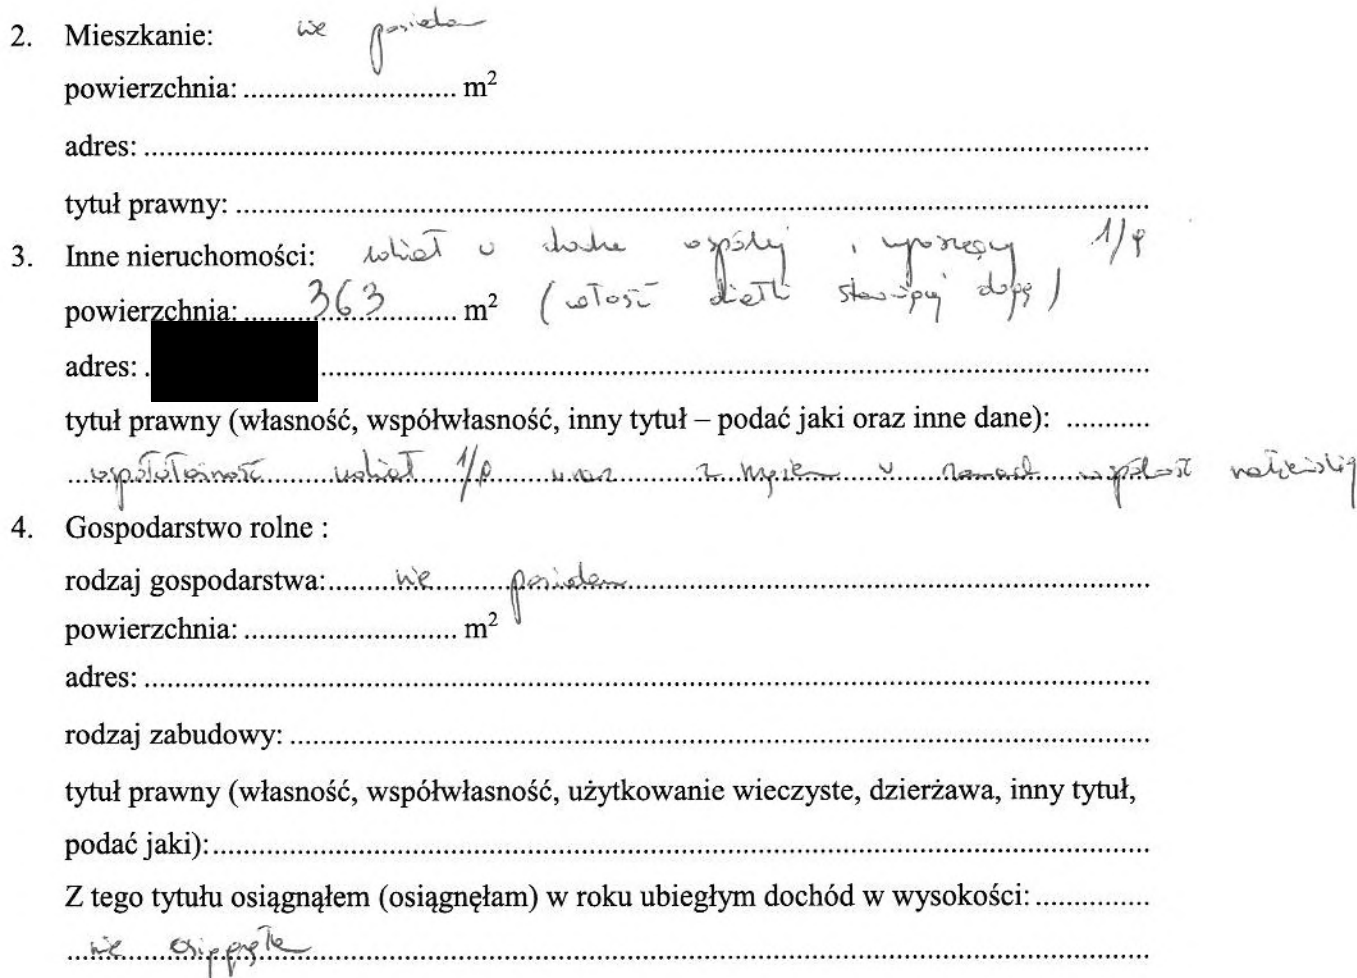 2. Mieszkanie: nie posiadam
powierzchnia: ............................ m²
adres: ....................................................................................................................................
tytuł prawny: ........................................................................................................................
3. Inne nieruchomości: udział w drodze wspólnej i wynoszący 1/8
powierzchnia: ........363.................. m² (całość działki stanowiącej drogę)
adres: . ............................................................................................................
tytuł prawny (własność, współwłasność, inny tytuł – podać jaki oraz inne dane): ...........
...współwłasność udział 1/8 wraz z mężem w ramach wspólności małżeńskiej
4. Gospodarstwo rolne :
rodzaj gospodarstwa:.........nie..........posiadam....................................................................
powierzchnia: ............................ m²
adres: ....................................................................................................................................
rodzaj zabudowy: .................................................................................................................
tytuł prawny (własność, współwłasność, użytkowanie wieczyste, dzierżawa, inny tytuł,
podać jaki):...........................................................................................................................
Z tego tytułu osiągnąłem (osiągnęłam) w roku ubiegłym dochód w wysokości: ...............
....nie.......osiągnęłam..............................................................................................................